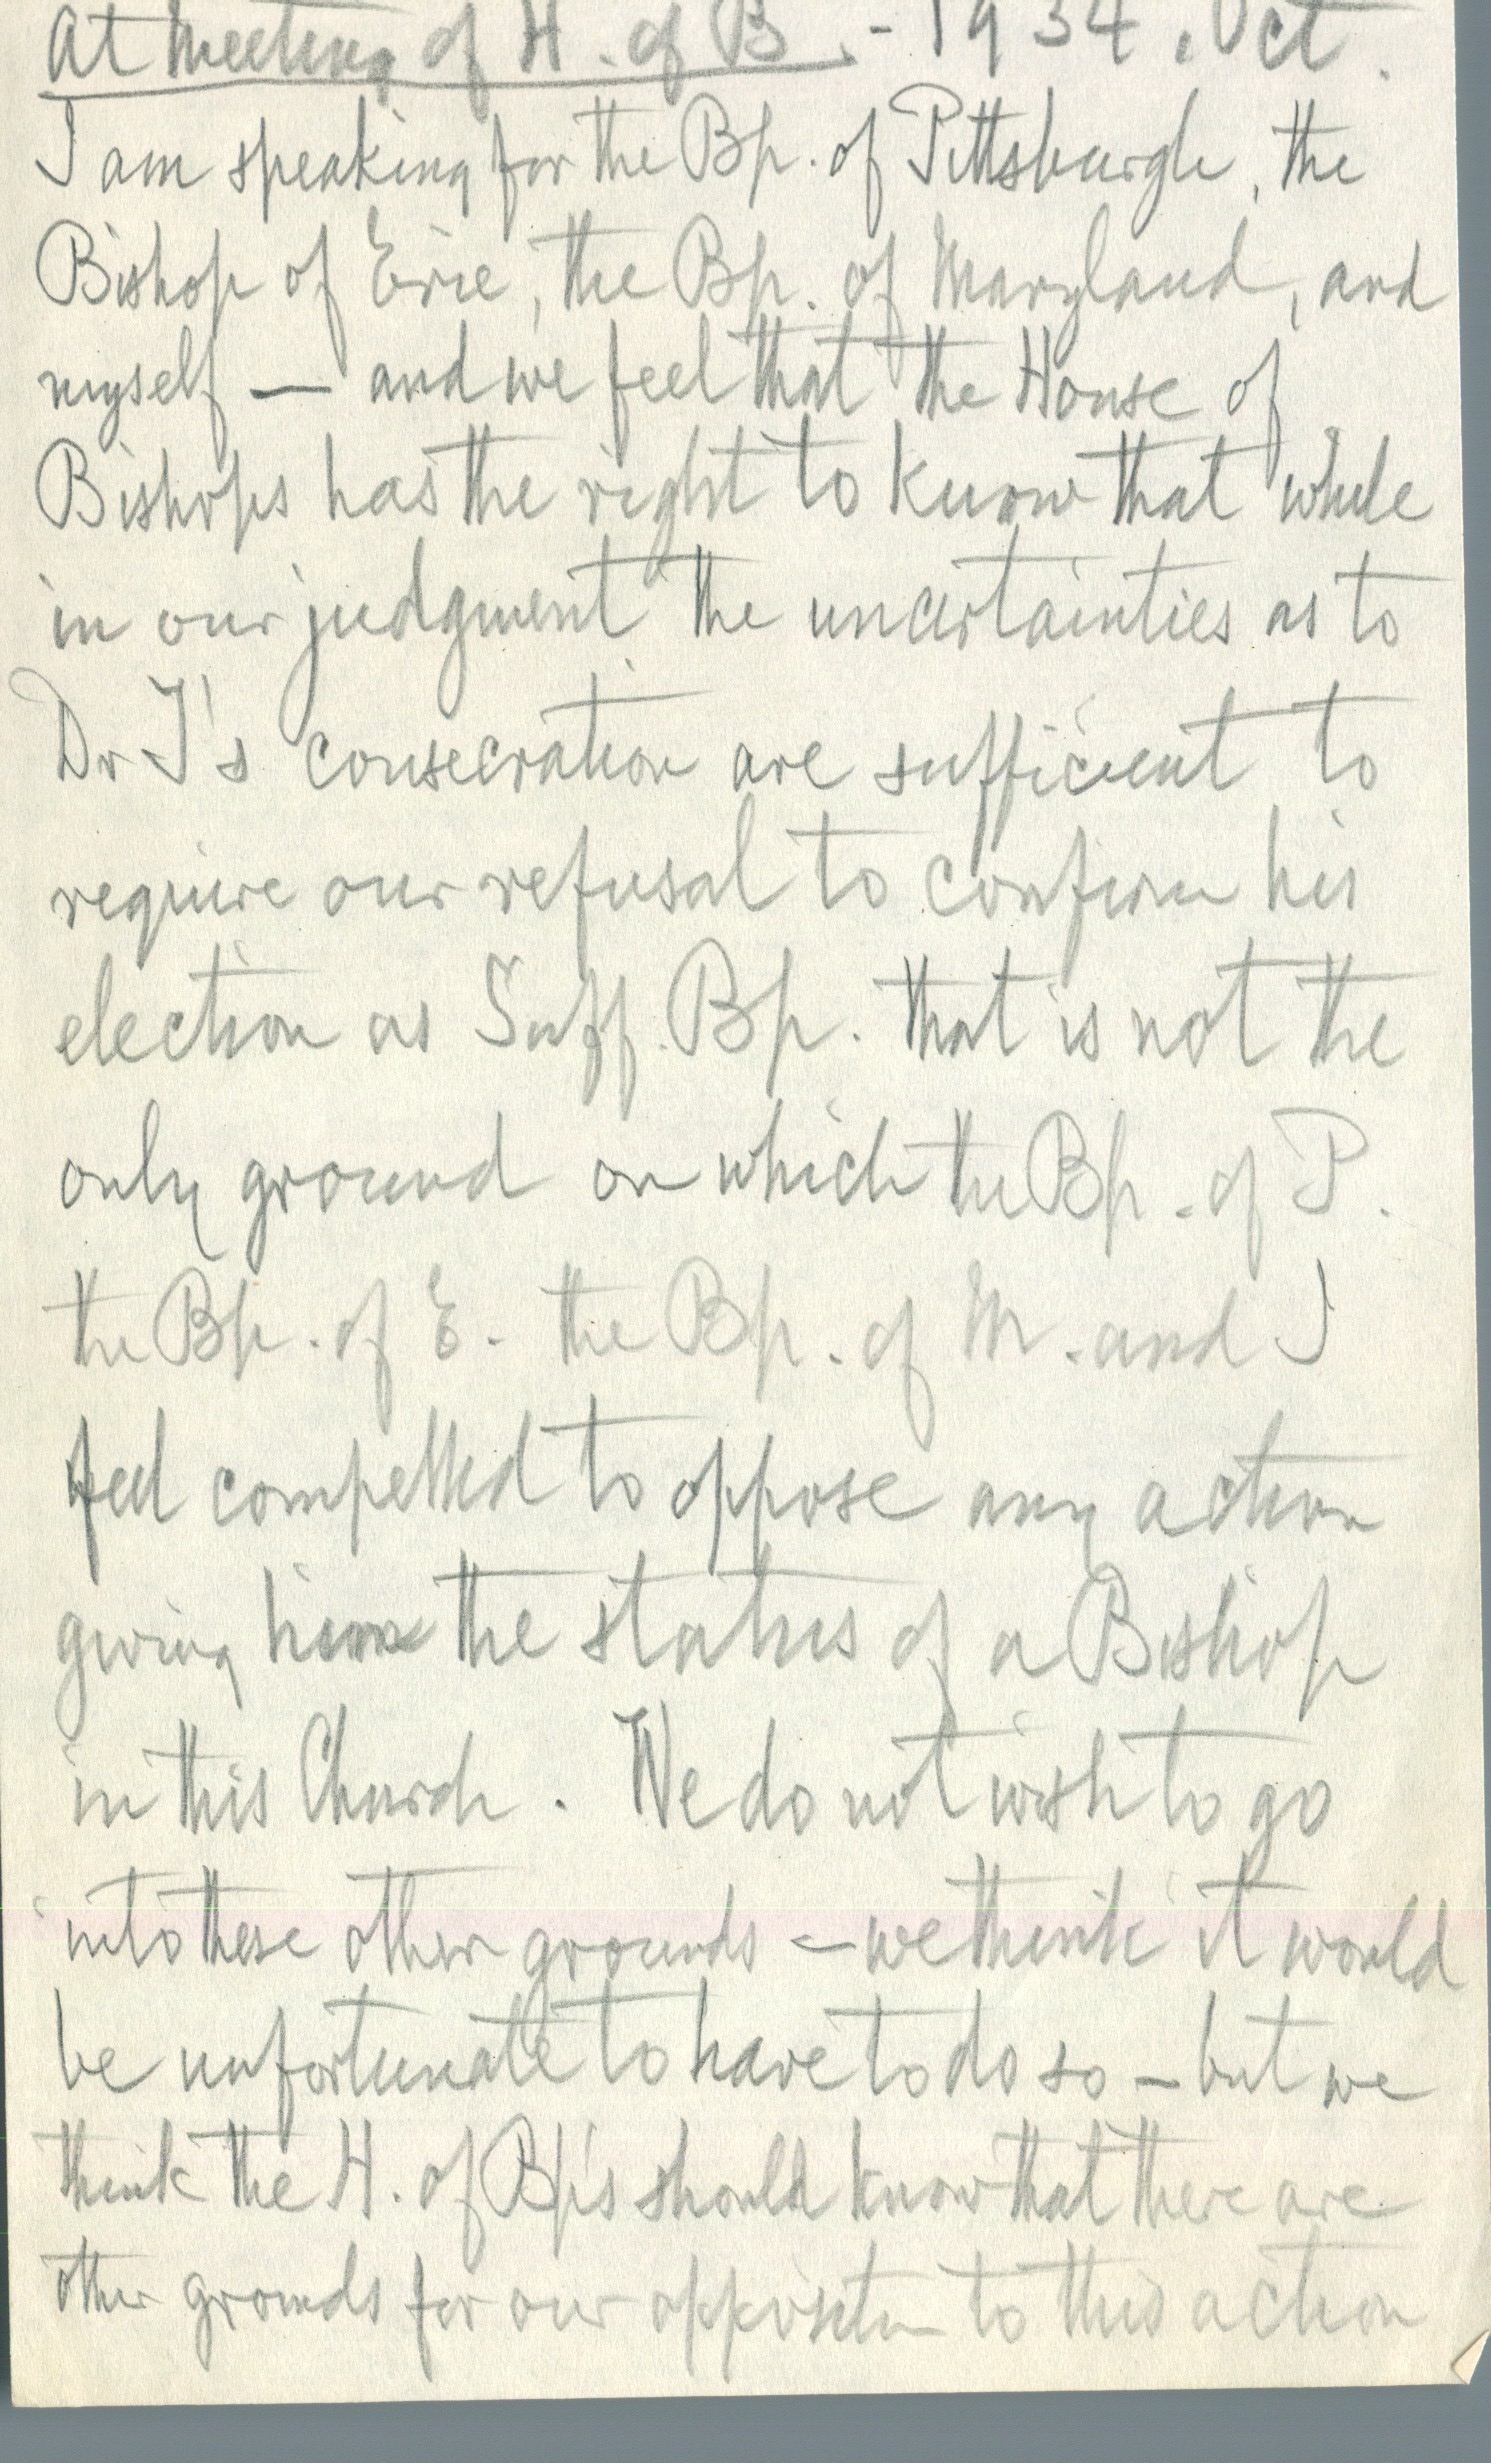 At meeting of H. of B. - 1934. Oct.
I am speaking for the Bp. of Pittsburgh, the
Bishop of Erie, the Bp. of Maryland, and
myself — and we feel that the House of
Bishops has the right to know that while
in our judgment the uncertainties as to
Dr T's consecration are sufficient to
require our refusal to confirm his
election as Suff. Bp. that is not the
only ground on which the Bp. of P.
the Bp. of E. the Bp. of M. and I
feel compelled to oppose any action
giving him the status of a Bishop
in this Church. We do not wish to go
into these other grounds — we think it would
be unfortunate to have to do so — but we
think the H. of Bp's should know that there are
other grounds for our opposition to this action